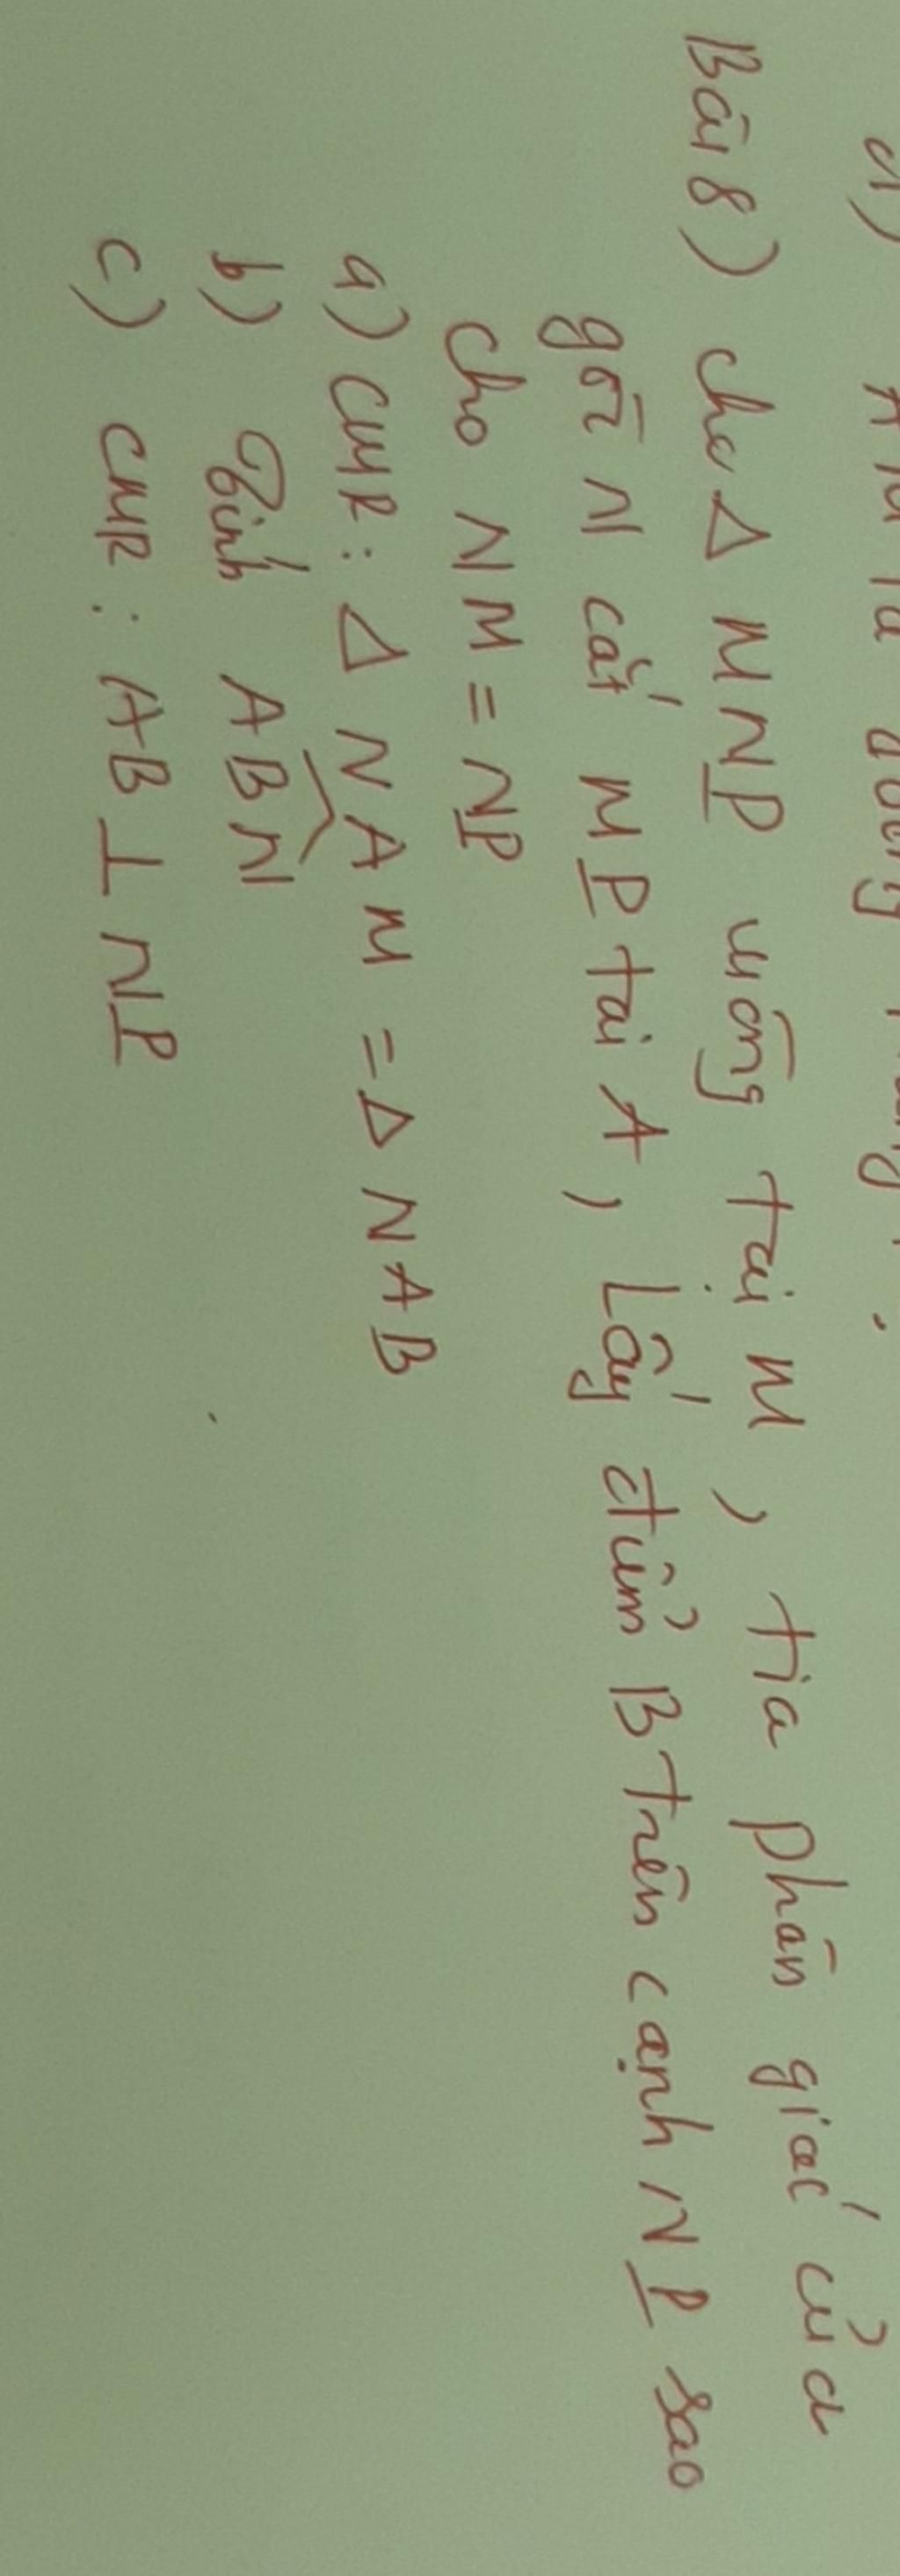 d)
Bài 8) cho Δ MNP vuông tại M, tia phân giác của
góc N cắt MP tại A, Lấy điểm B trên cạnh NP sao
cho NM = NP
a) CMR: Δ NAM = Δ NAB
b) Tính ABN
c) CMR: AB ⊥ NP